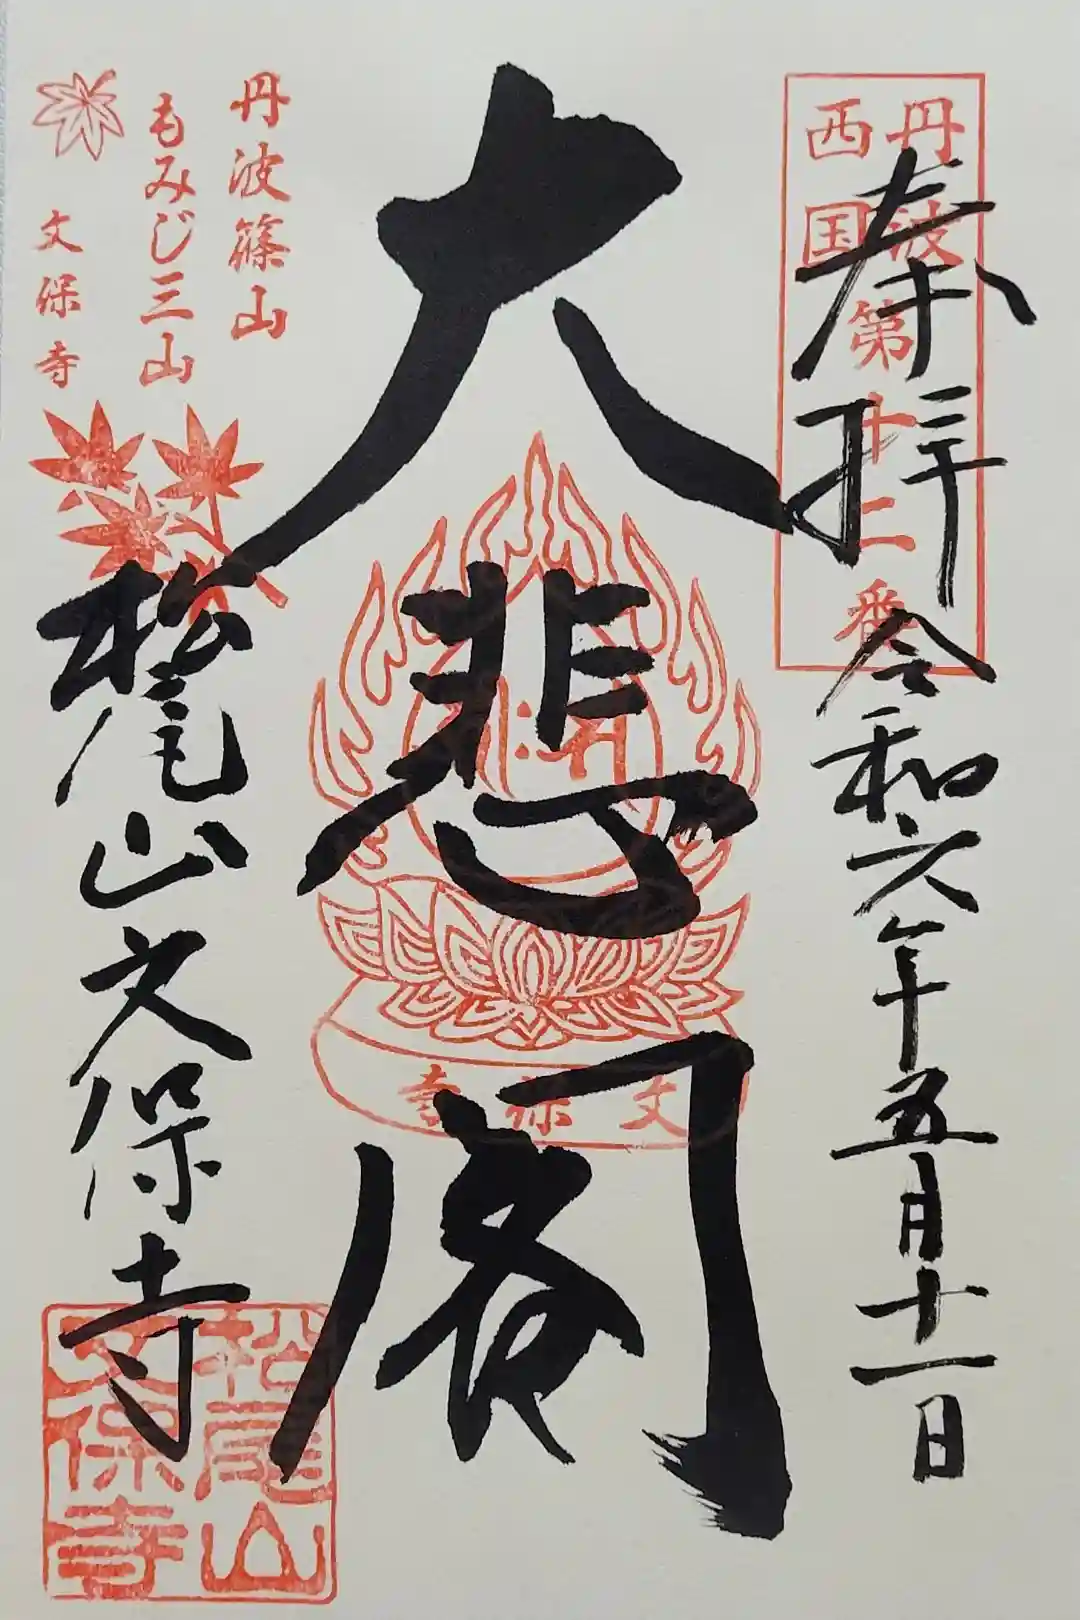 丹波
西国
第十二番
奉拝
令和六年五月十一日
大悲閣
松尾山文保寺
丹波篠山
もみじ三山
文保寺
文保寺
松尾山
文保寺